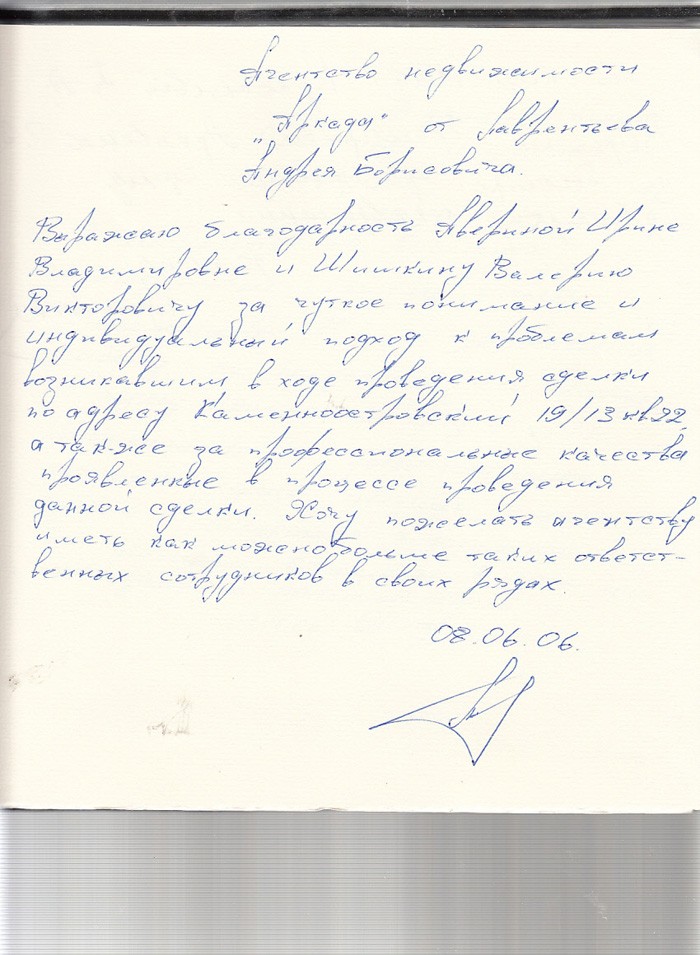 Агентство недвижимости
"Аркада" от Лаврентьева
Андрея Борисовича.
Выражаю благодарность Авериной Ирине
Владимировне и Шишкину Валерию
Викторовичу за чуткое понимание и
индивидуальный подход к проблемам
возникавшим в ходе проведения сделки
по адресу Каменноостровский 19/13 кв 22,
а так-же за профессиональные качества
проявленные в процессе проведения
данной сделки. Хочу пожелать агентству
иметь как можно больше таких ответст-
венных сотрудников в своих рядах.
08.06.06.